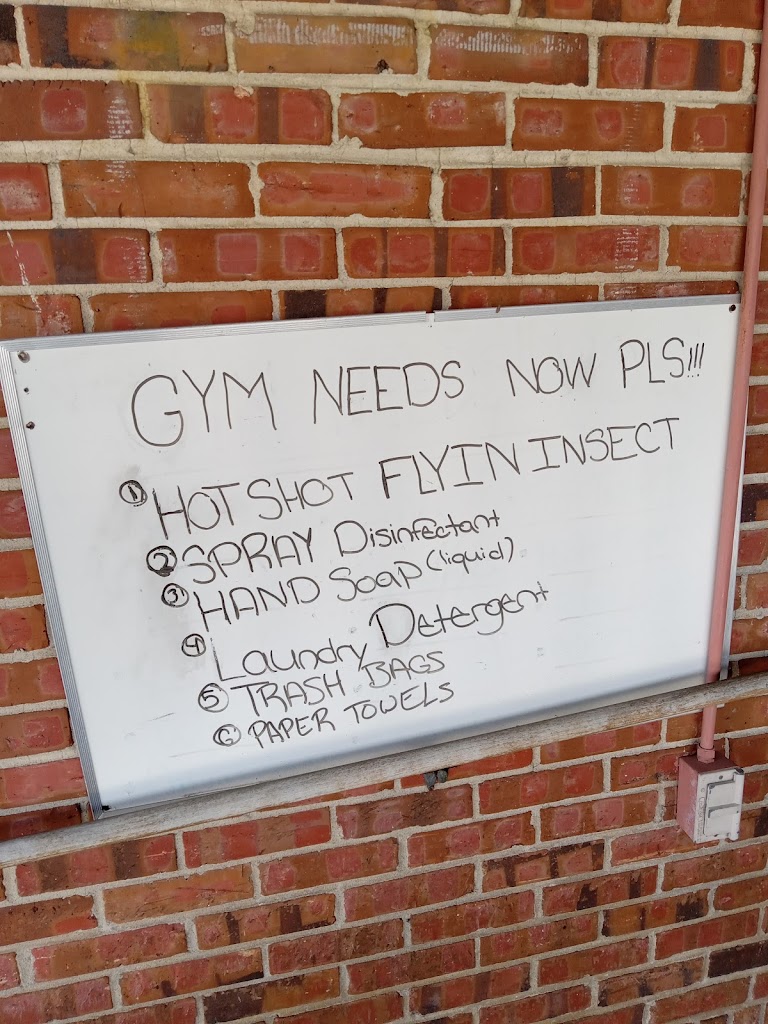 GYM NEEDS NOW PLS!!!
① HOT SHOT FLYIN INSECT
② SPRAY Disinfectant
③ HAND Soap (liquid)
④ Laundry Detergent
⑤ TRASH BAGS
⑥ PAPER TOWELS